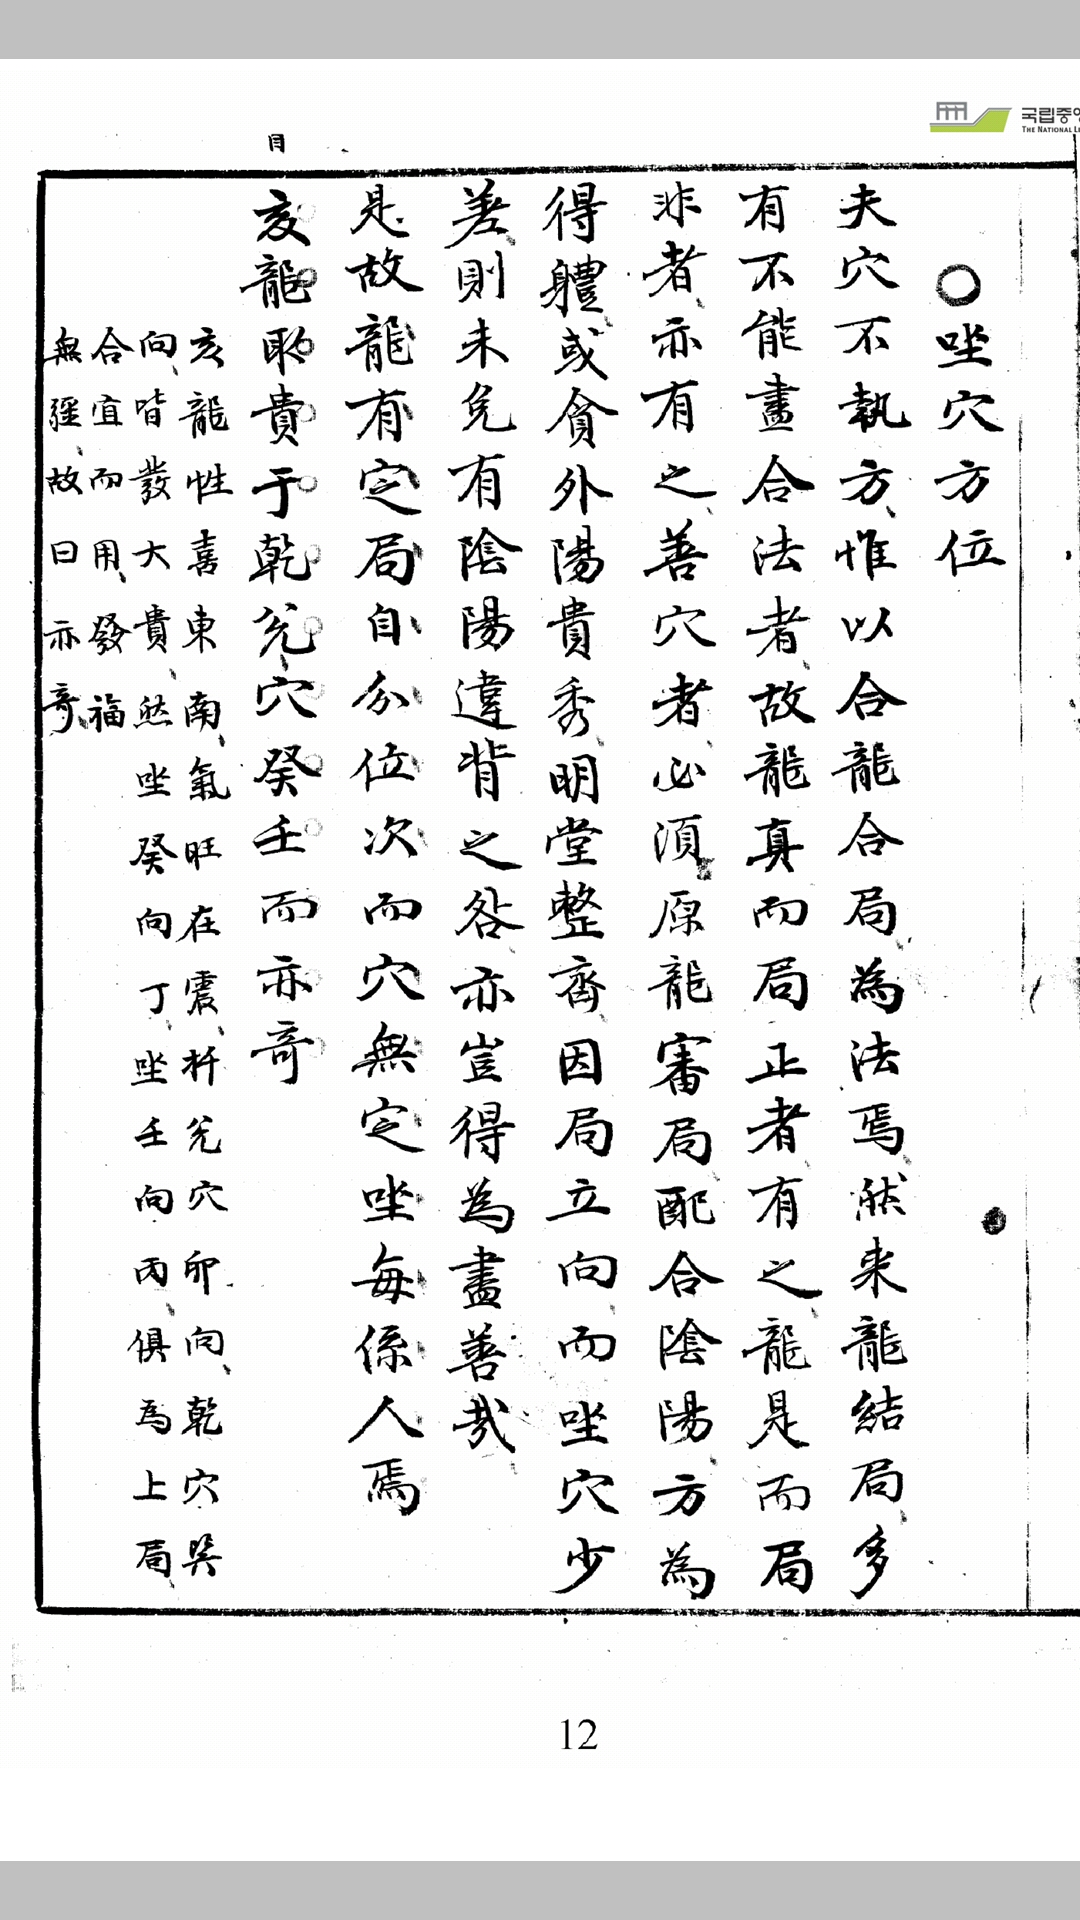 국립중앙
THE NATIONAL LI
目
○坐穴方位
夫穴不執方惟以合龍合局為法焉然来龍結局多
有不能盡合法者故龍真而局正者有之龍是而局
非者亦有之善穴者必須原龍審局配合陰陽方為
得軆或貪外陽貴秀明堂整齊因局立向而坐穴少
差則未免有陰陽違背之咎亦豈得為盡善哉
是故龍有定局自分位次而穴無定坐每係人焉
亥龍取貴于乾兊穴癸壬而亦奇
亥龍性喜東南氣旺在震杵兊穴卯向乾穴巽
向皆發大貴然坐癸向丁坐壬向丙俱為上局
合宜而用發福
無疆故曰亦奇
12